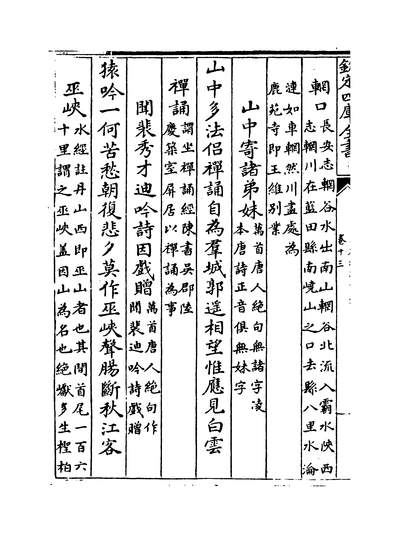 欽定四庫全書
卷十三
輞口
長安志輞谷水出南山輞谷北流入霸水陜西
志輞川在藍田縣南嶢山之口去縣八里水淪
漣如車輞然川盡處為
鹿苑寺即王維别業
山中寄諸弟妹
萬首唐人絶句無諸字凌
本唐詩正音俱無妹字
山中多法侣禪誦自為羣城郭遥相望惟應見白雲
禪誦
謂坐禪誦經陳書吴郡陸
慶築室屏居以禪誦為事
聞裴秀才迪吟詩因戲贈
萬首唐人絶句作
聞裴迪吟詩戲贈
猿吟一何苦愁朝復悲夕莫作巫峽聲腸斷秋江客
巫峽
水經註丹山西即巫山者也其間首尾一百六
十里謂之巫峽盖因山為名也絶巘多生檉柏